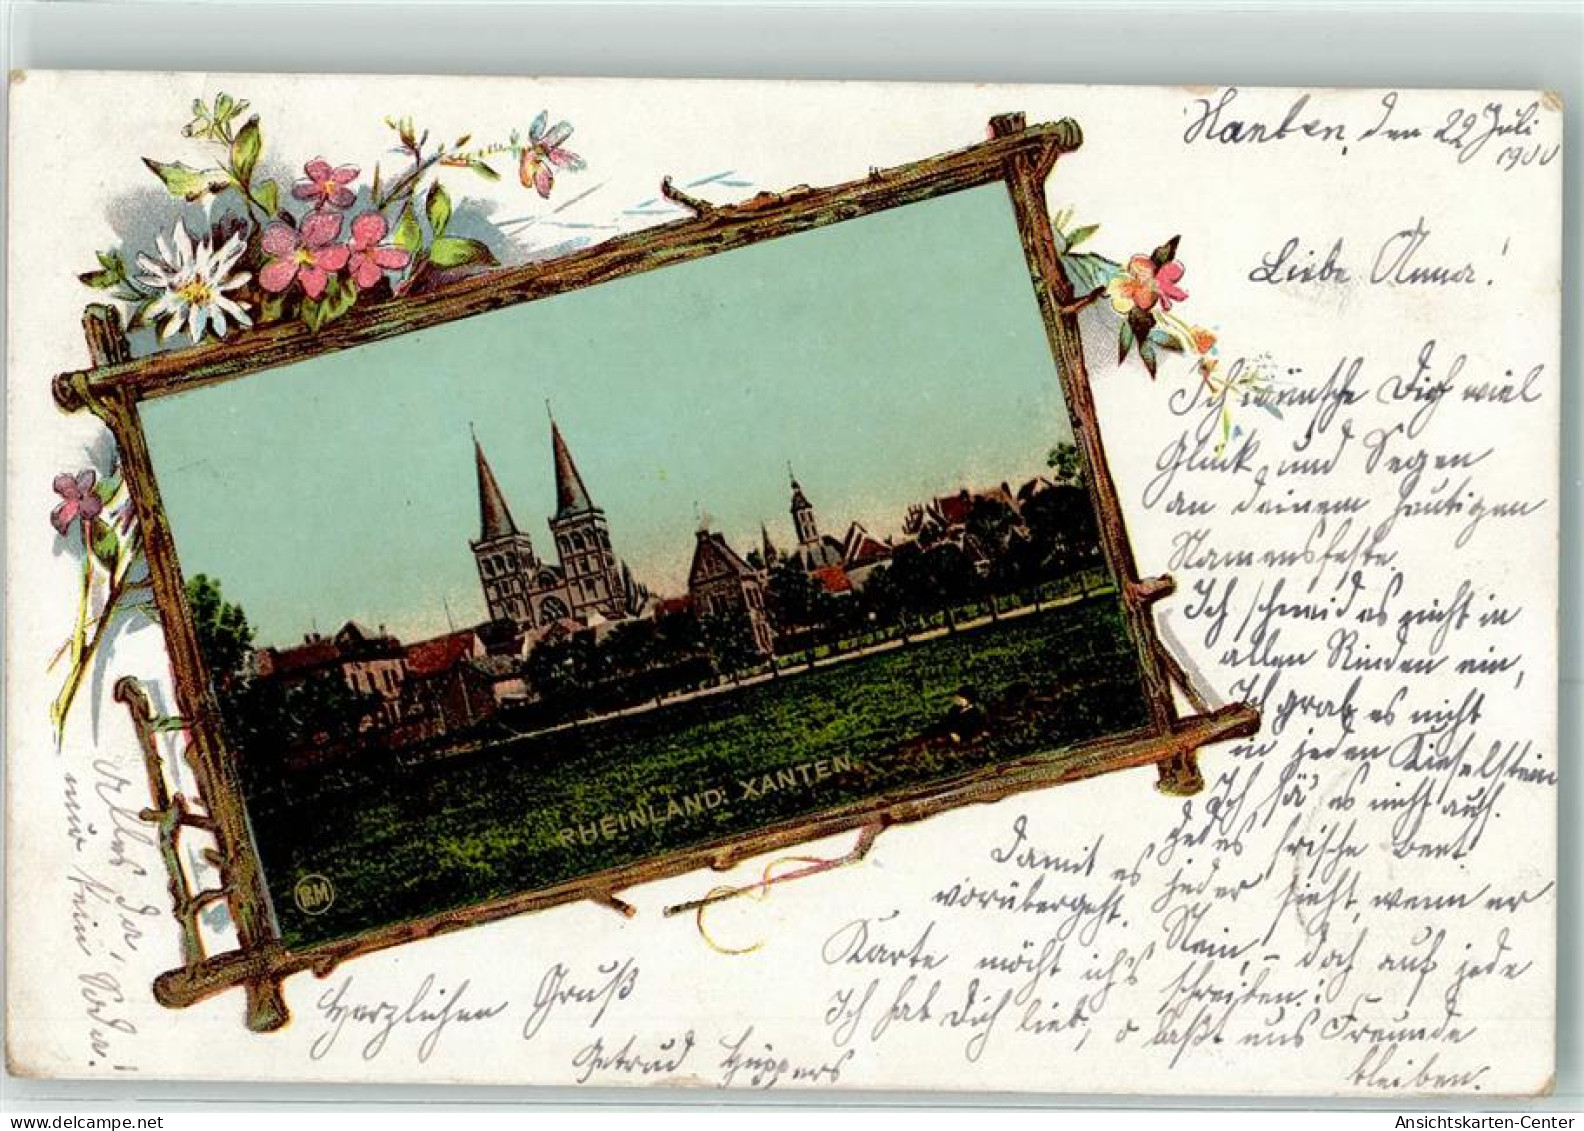 Xanten, den 22 Juli
1900
Liebe Anna!
Ich wünsche Dich viel
Glück und Segen
an deinem heutigen
Namensfeste.
Ich schneid es nicht in
allen Rinden ein,
Ich grab es nicht
in jeden Kieselstein
Ich sä' es nicht auf
jedes frische Beet
Damit es jeder sieht, wenn er
vorübergeht.
Nein, – doch auf jede
Karte möcht ich's schreiben:
Ich hab Dich lieb, o laßt uns Freunde
bleiben.
Herzlichen Gruß
Getrud Hüppers
Alles da,
nur kein
RHEINLAND: XANTEN.
RM
Ansichtskarten-Center